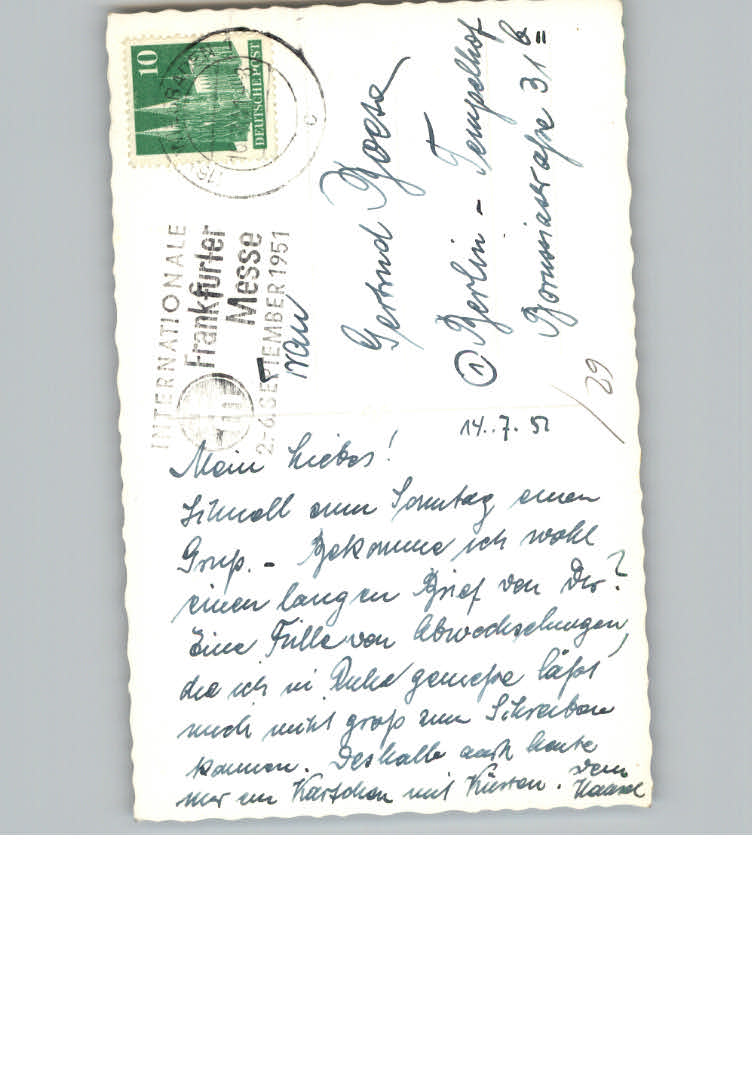 10
DEUTSCHE POST
INTERNATIONALE
Frankfurter
Messe
2.-6. SEPTEMBER 1951
c
Frau
Gertrud Boese
① Berlin - Tempelhof
Borussiastraße 31b
/29
14.7.51
Mein Liebes!
Schnell zum Sonntag einen
Gruß. - Bekomme ich wohl
einen langen Brief von Dir?
Eine Fülle von Abwechselungen,
die ich in Ruhe genieße läßt
mich nicht groß zum Schreiben
kommen. Deshalb auch heute
nur ein Kärtchen mit Küssen. Dein